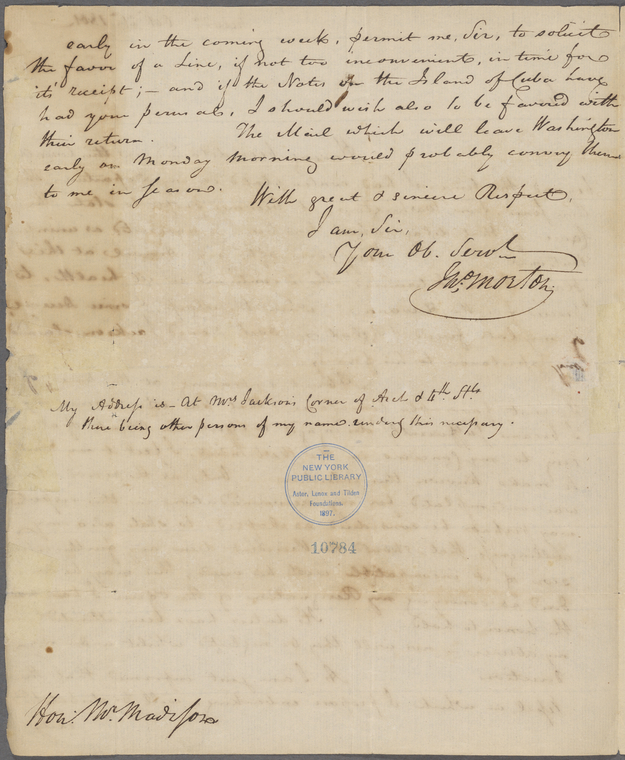 early in the coming week, permit me, Sir, to solicit
the favor of a Line, if not too inconvenient, in time for
its' receipt; – and if the Notes on the Island of Cuba have
had your perusal, I should wish also to be favored with
their return. The Mail which will leave Washington
early on Monday Morning would probably convey them
to me in Season. With great & sincere Respect,
I am, Sir,
Your Ob. Servt
Jno. Morton
My Address is – At Mrs Jackson's Corner of Arch & 4th Sts
there being other persons of my name rendering this necessary.
THE
NEW YORK
PUBLIC LIBRARY
Astor, Lenox and Tilden
Foundations.
1897.
10784
Hon: Mr. Madison